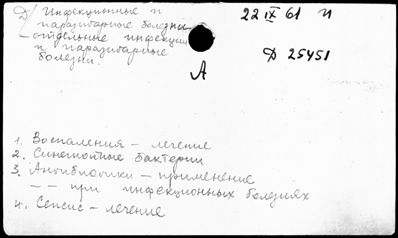 Д/ Инфекционные и
паразитарные болезни
отдельные инфекции
и паразитарные
болезни.
22 IX 61 и
Д 25451
А
1. Воспаления – лечение
2. Синегнойные бактерии
3. Антибиотики – применение
– – при инфекционных болезнях
4. Сепсис – лечение